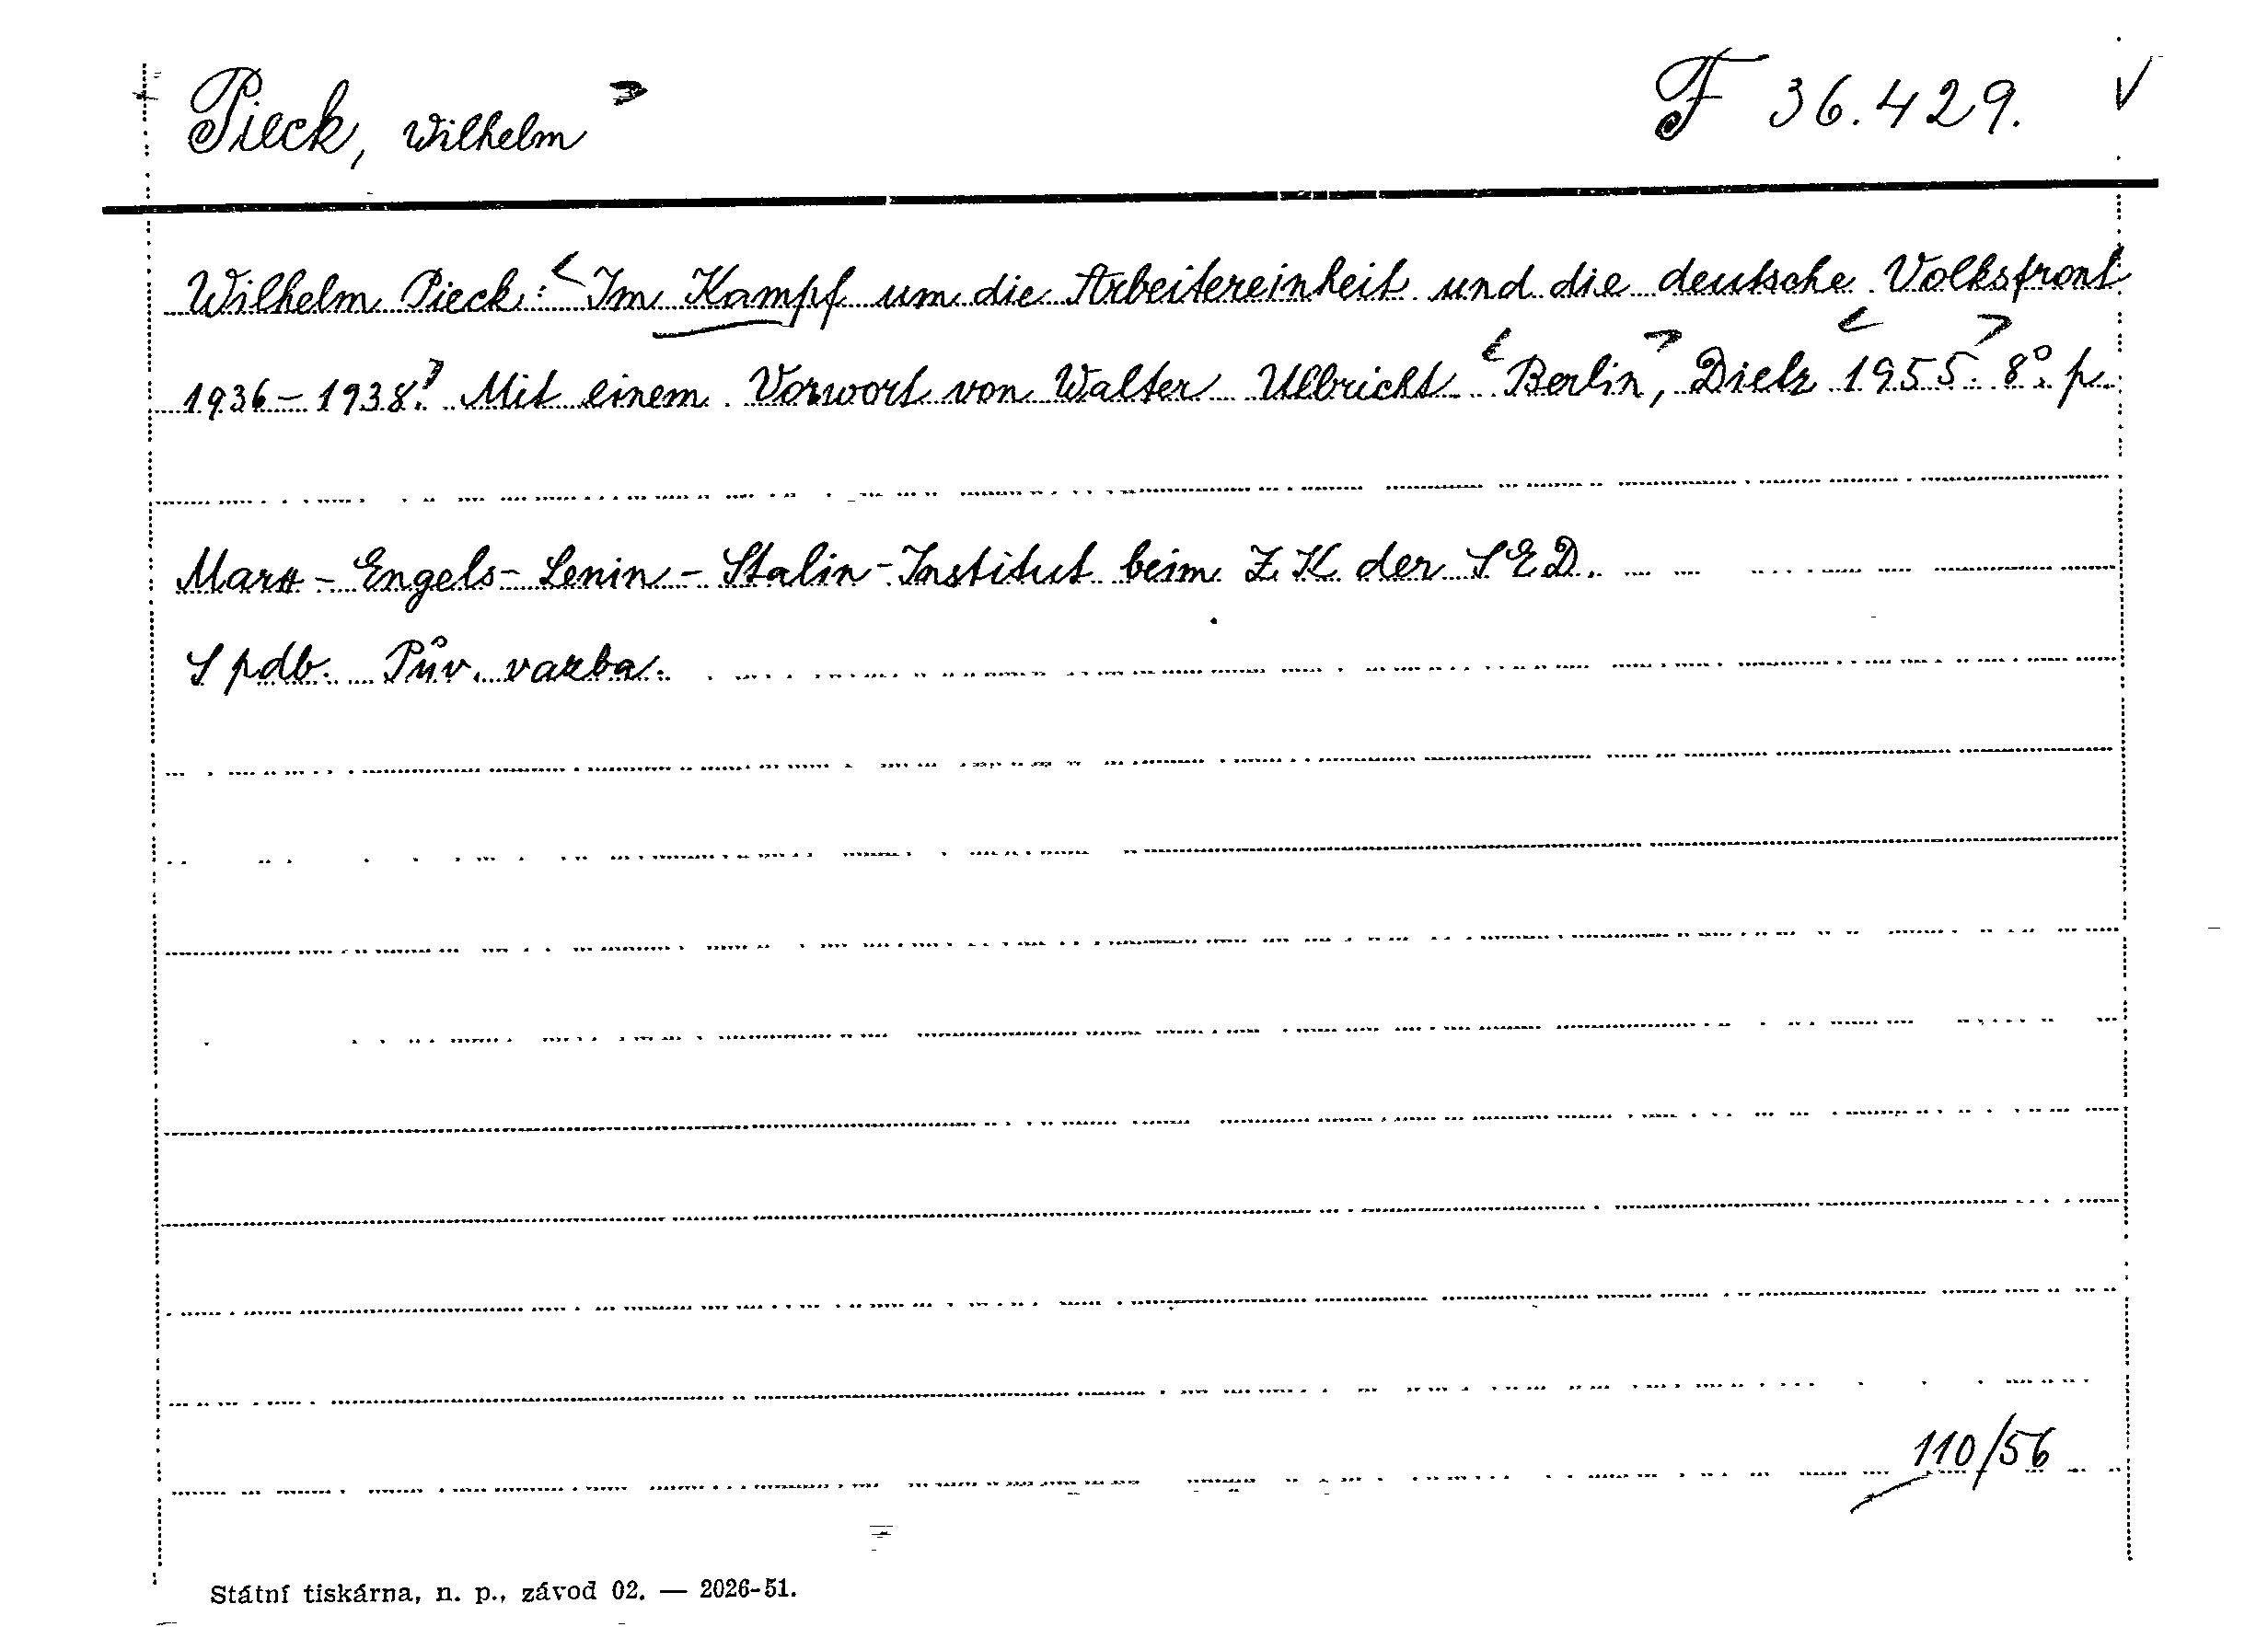 Pieck, Wilhelm F 36.429. √
Wilhelm Pieck: Im Kampf um die Arbeitereinheit und die deutsche Volksfront
1936–1938. Mit einem Vorwort von Walter Ulbricht. Berlin, Dietz 1955. 8°. p.
Marx-Engels-Lenin-Stalin-Institut beim ZK der SED.
S pdb. Pův. vazba.
110/56
Státní tiskárna, n. p., závod 02. — 2026-51.